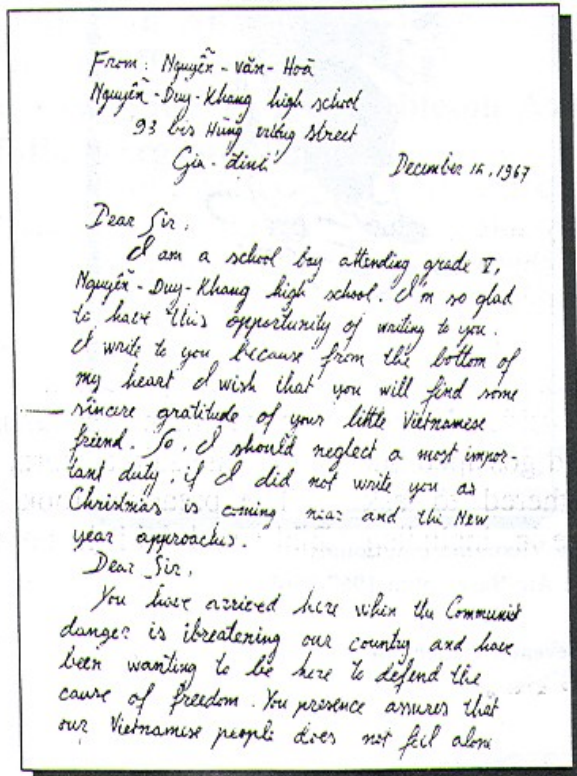 From: Nguyễn-văn-Hoà
Nguyễn-Duy-Khang high school
93 bis Hùng vương street
Gia-định
December 15, 1967
Dear Sir,
I am a school boy attending grade V,
Nguyễn-Duy-Khang high school. I'm so glad
to have this opportunity of writing to you.
I write to you because from the bottom of
my heart I wish that you will find some
sincere gratitude of your little Vietnamese
friend. So, I should neglect a most impor-
tant duty, if I did not write you as
Christmas is coming near and the New
year approaches.
Dear Sir,
You have arrived here when the Communist
danger is threatening our country and have
been wanting to be here to defend the
cause of freedom. You presence assures that
our Vietnamese people does not feel alone